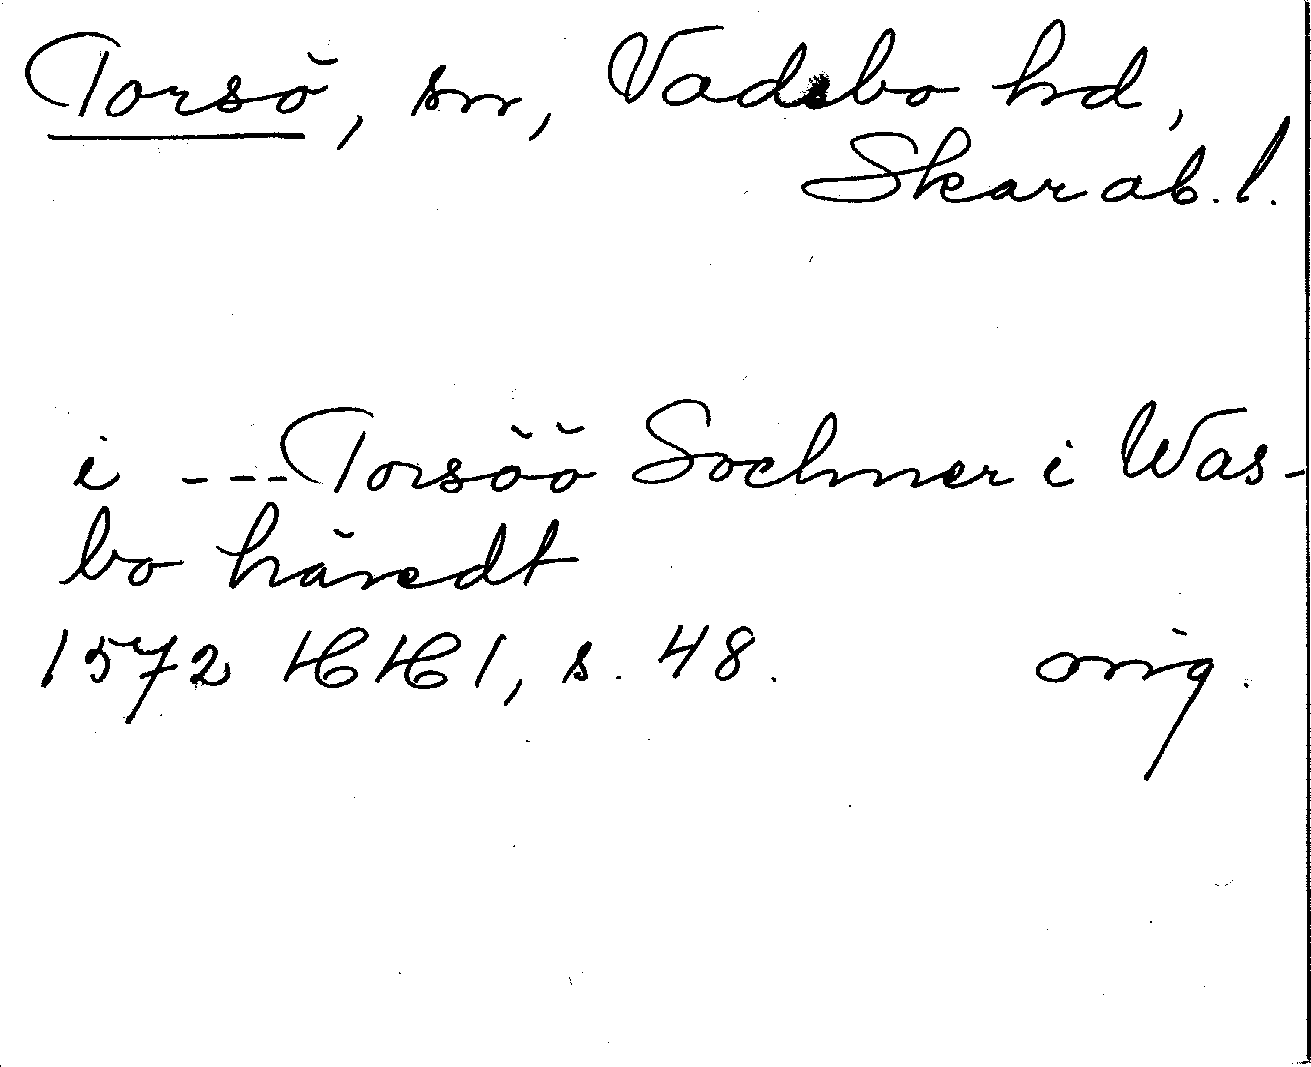 Torsö, sn, Vadsbo hd,
Skarab. l.
i --- Torsöö Sochner i Was-
bo häredt
1572 HH 1, s. 48. orig.